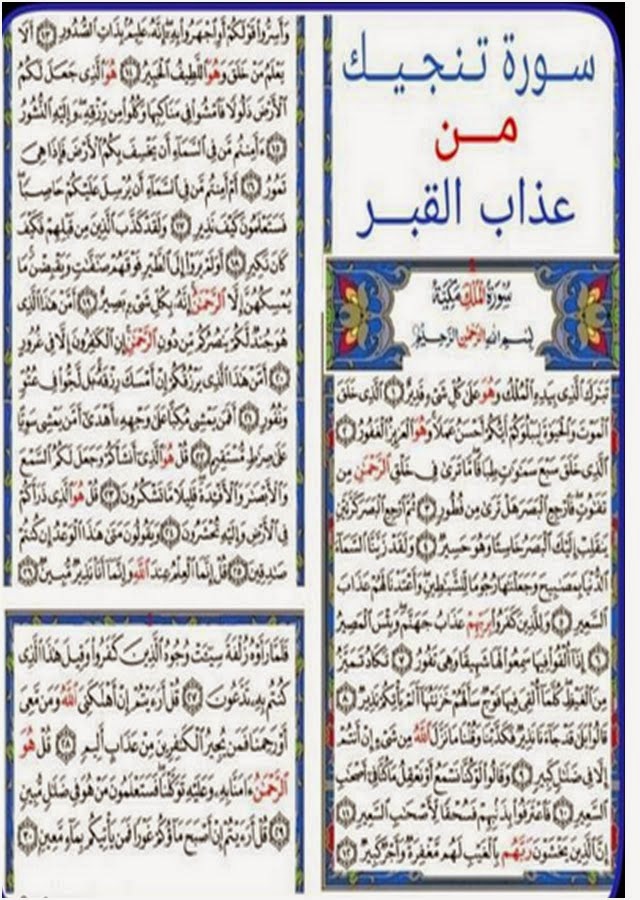 سورة تنجيك
من
عذاب القبر
سُورَةُ المُلكِ مَكِيَّة
بِسْمِ اللَّهِ الرَّحْمَٰنِ الرَّحِيمِ
تَبَٰرَكَ ٱلَّذِى بِيَدِهِ ٱلْمُلْكُ وَهُوَ عَلَىٰ كُلِّ شَىْءٍ قَدِيرٌ ١ ٱلَّذِى خَلَقَ
ٱلْمَوْتَ وَٱلْحَيَوٰةَ لِيَبْلُوَكُمْ أَيُّكُمْ أَحْسَنُ عَمَلًا وَهُوَ ٱلْعَزِيزُ ٱلْغَفُورُ ٢
ٱلَّذِى خَلَقَ سَبْعَ سَمَٰوَٰتٍ طِبَاقًا مَّا تَرَىٰ فِى خَلْقِ ٱلرَّحْمَٰنِ مِن
تَفَٰوُتٍ فَٱرْجِعِ ٱلْبَصَرَ هَلْ تَرَىٰ مِن فُطُورٍ ٣ ثُمَّ ٱرْجِعِ ٱلْبَصَرَ كَرَّتَيْنِ
يَنقَلِبْ إِلَيْكَ ٱلْبَصَرُ خَاسِئًا وَهُوَ حَسِيرٌ ٤ وَلَقَدْ زَيَّنَّا ٱلسَّمَآءَ
ٱلدُّنْيَا بِمَصَٰبِيحَ وَجَعَلْنَٰهَا رُجُومًا لِّلشَّيَٰطِينِ وَأَعْتَدْنَا لَهُمْ عَذَابَ
ٱلسَّعِيرِ ٥ وَلِلَّذِينَ كَفَرُوا۟ بِرَبِّهِمْ عَذَابُ جَهَنَّمَ وَبِئْسَ ٱلْمَصِيرُ
٦ إِذَآ أُلْقُوا۟ فِيهَا سَمِعُوا۟ لَهَا شَهِيقًا وَهِىَ تَفُورُ ٧ تَكَادُ تَمَيَّزُ
مِنَ ٱلْغَيْظِ كُلَّمَآ أُلْقِىَ فِيهَا فَوْجٌ سَأَلَهُمْ خَزَنَتُهَآ أَلَمْ يَأْتِكُمْ نَذِيرٌ ٨
قَالُوا۟ بَلَىٰ قَدْ جَآءَنَا نَذِيرٌ فَكَذَّبْنَا وَقُلْنَا مَا نَزَّلَ ٱللَّهُ مِن شَىْءٍ إِنْ أَنتُمْ
إِلَّا فِى ضَلَٰلٍ كَبِيرٍ ٩ وَقَالُوا۟ لَوْ كُنَّا نَسْمَعُ أَوْ نَعْقِلُ مَا كُنَّا فِىٓ أَصْحَٰبِ
ٱلسَّعِيرِ ١٠ فَٱعْتَرَفُوا۟ بِذَنۢبِهِمْ فَسُحْقًا لِّأَصْحَٰبِ ٱلسَّعِيرِ ١١
إِنَّ ٱلَّذِينَ يَخْشَوْنَ رَبَّهُم بِٱلْغَيْبِ لَهُم مَّغْفِرَةٌ وَأَجْرٌ كَبِيرٌ ١٢
وَأَسِرُّوا۟ قَوْلَكُمْ أَوِ ٱجْهَرُوا۟ بِهِۦٓ إِنَّهُۥ عَلِيمٌۢ بِذَاتِ ٱلصُّدُورِ ١٣ أَلَا
يَعْلَمُ مَنْ خَلَقَ وَهُوَ ٱللَّطِيفُ ٱلْخَبِيرُ ١٤ هُوَ ٱلَّذِى جَعَلَ لَكُمُ
ٱلْأَرْضَ ذَلُولًا فَٱمْشُوا۟ فِى مَنَاكِبِهَا وَكُلُوا۟ مِن رِّزْقِهِۦ وَإِلَيْهِ ٱلنُّشُورُ
١٥ ءَأَمِنتُم مَّن فِى ٱلسَّمَآءِ أَن يَخْسِفَ بِكُمُ ٱلْأَرْضَ فَإِذَا هِىَ
تَمُورُ ١٦ أَمْ أَمِنتُم مَّن فِى ٱلسَّمَآءِ أَن يُرْسِلَ عَلَيْكُمْ حَاصِبًا
فَسَتَعْلَمُونَ كَيْفَ نَذِيرِ ١٧ وَلَقَدْ كَذَّبَ ٱلَّذِينَ مِن قَبْلِهِمْ فَكَيْفَ
كَانَ نَكِيرِ ١٨ أَوَلَمْ يَرَوْا۟ إِلَى ٱلطَّيْرِ فَوْقَهُمْ صَٰٓفَّٰتٍ وَيَقْبِضْنَ مَا
يُمْسِكُهُنَّ إِلَّا ٱلرَّحْمَٰنُ إِنَّهُۥ بِكُلِّ شَىْءٍۭ بَصِيرٌ ١٩ أَمَّنْ هَٰذَا ٱلَّذِى
هُوَ جُندٌ لَّكُمْ يَنصُرُكُم مِّن دُونِ ٱلرَّحْمَٰنِ إِنِ ٱلْكَٰفِرُونَ إِلَّا فِى غُرُورٍ
٢٠ أَمَّنْ هَٰذَا ٱلَّذِى يَرْزُقُكُمْ إِنْ أَمْسَكَ رِزْقَهُۥ بَل لَّجُّوا۟ فِى عُتُوٍّ
وَنُفُورٍ ٢١ أَفَمَن يَمْشِى مُكِبًّا عَلَىٰ وَجْهِهِۦٓ أَهْدَىٰٓ أَمَّن يَمْشِى سَوِيًّا
عَلَىٰ صِرَٰطٍ مُّسْتَقِيمٍ ٢٢ قُلْ هُوَ ٱلَّذِىٓ أَنشَأَكُمْ وَجَعَلَ لَكُمُ ٱلسَّمْعَ
وَٱلْأَبْصَٰرَ وَٱلْأَفْـِٔدَةَ قَلِيلًا مَّا تَشْكُرُونَ ٢٣ قُلْ هُوَ ٱلَّذِى ذَرَأَكُمْ
فِى ٱلْأَرْضِ وَإِلَيْهِ تُحْشَرُونَ ٢٤ وَيَقُولُونَ مَتَىٰ هَٰذَا ٱلْوَعْدُ إِن كُنتُمْ
صَٰدِقِينَ ٢٥ قُلْ إِنَّمَا ٱلْعِلْمُ عِندَ ٱللَّهِ وَإِنَّمَآ أَنَا۠ نَذِيرٌ مُّبِينٌ ٢٦
فَلَمَّا رَأَوْهُ زُلْفَةً سِيٓـَٔتْ وُجُوهُ ٱلَّذِينَ كَفَرُوا۟ وَقِيلَ هَٰذَا ٱلَّذِى
كُنتُم بِهِۦ تَدَّعُونَ ٢٧ قُلْ أَرَءَيْتُمْ إِنْ أَهْلَكَنِىَ ٱللَّهُ وَمَن مَّعِىَ
أَوْ رَحِمَنَا فَمَن يُجِيرُ ٱلْكَٰفِرِينَ مِنْ عَذَابٍ أَلِيمٍ ٢٨ قُلْ هُوَ
ٱلرَّحْمَٰنُ ءَامَنَّا بِهِۦ وَعَلَيْهِ تَوَكَّلْنَا فَسَتَعْلَمُونَ مَنْ هُوَ فِى ضَلَٰلٍ مُّبِينٍ
٢٩ قُلْ أَرَءَيْتُمْ إِنْ أَصْبَحَ مَآؤُكُمْ غَوْرًا فَمَن يَأْتِيكُم بِمَآءٍ مَّعِينٍۭ ٣٠